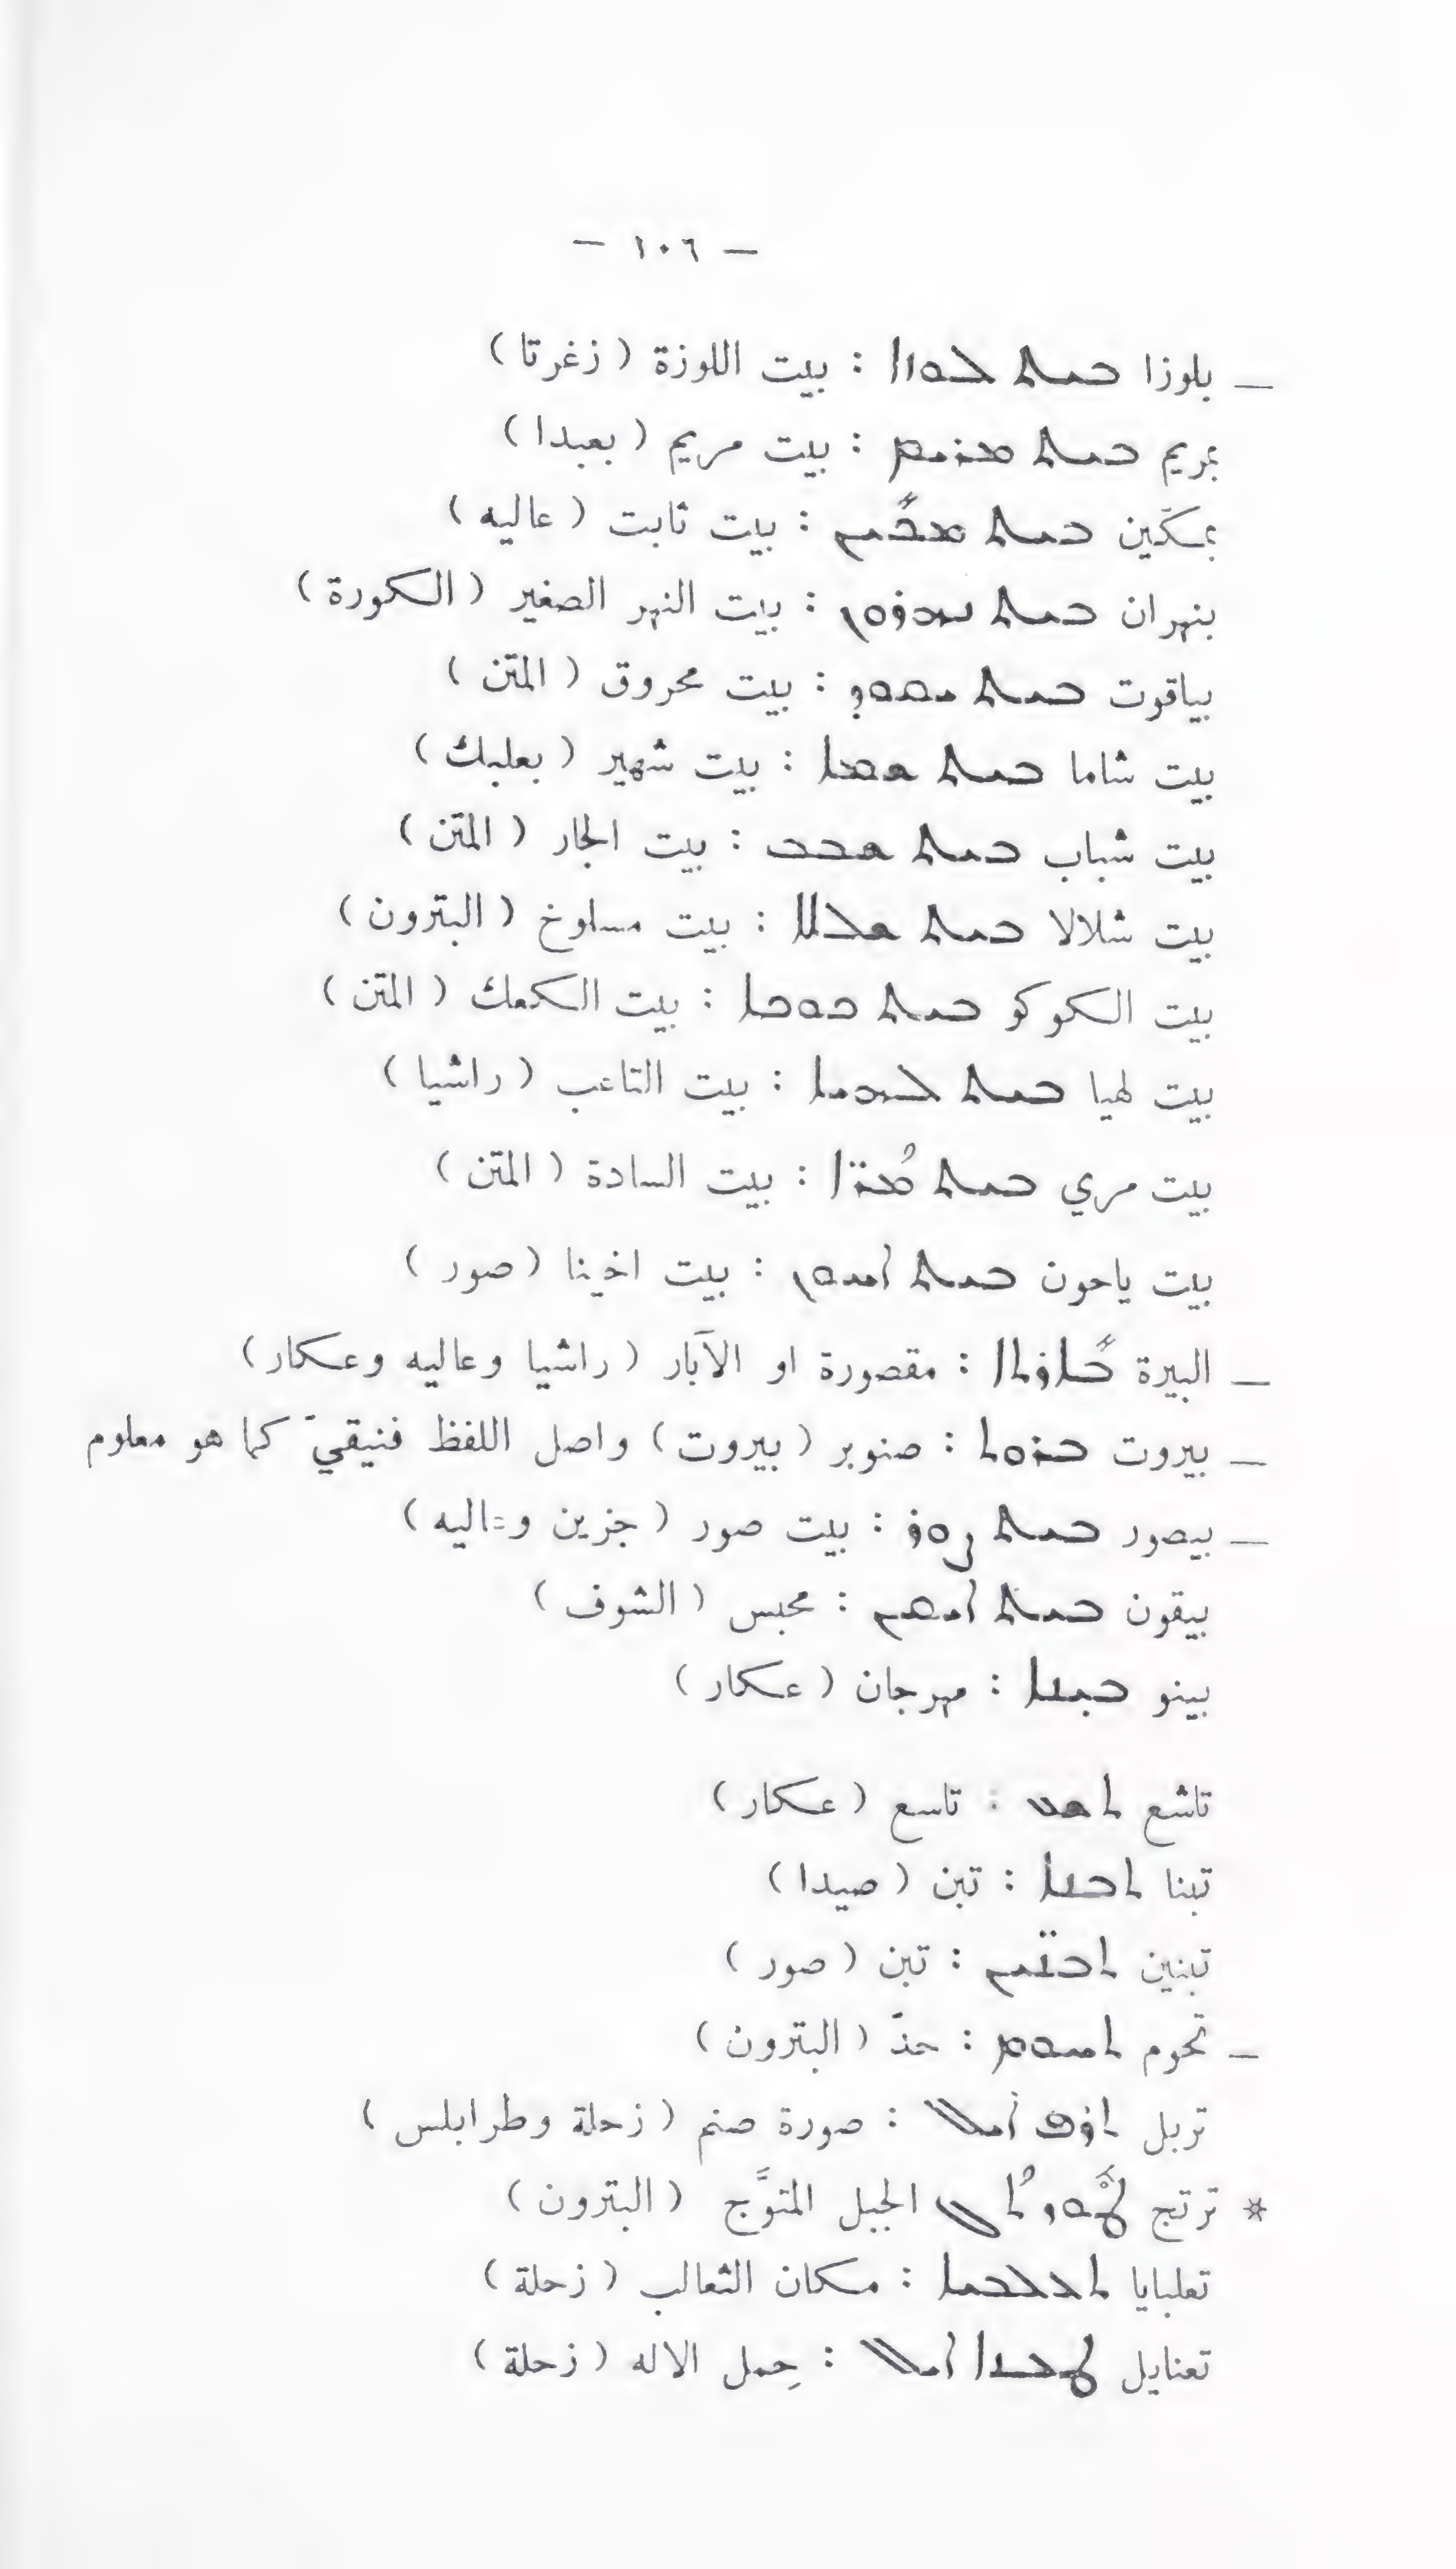 — ١٠٦ —
— بلوزا ܒܝܬ ܠܘܙܐ : بيت اللوزة ( زغرتا )
بمريم ܒܝܬ ܡܪܝܡ : بيت مريم ( بعبدا )
بمكّين ܒܝܬ ܡܟܝܢ : بيت ثابت ( عاليه )
بنهران ܒܝܬ ܢܗܪܘܢ : بيت النهر الصغير ( الكورة )
بياقوت ܒܝܬ ܝܩܘܕ : بيت محروق ( المتن )
بيت شاما ܒܝܬ ܫܡܐ : بيت شهير ( بعلبك )
بيت شباب ܒܝܬ ܫܒܒ : بيت الجار ( المتن )
بيت شلالا ܒܝܬ ܫܠܠܐ : بيت مسلوخ ( البترون )
بيت الكوكو ܒܝܬ ܟܘܟܐ : بيت الكعك ( المتن )
بيت لهيا ܒܝܬ ܠܗܝܐ : بيت التاعب ( راشيا )
بيت مري ܒܝܬ ܡܪ̈ܐ : بيت السادة ( المتن )
بيت ياحون ܒܝܬ ܐܚܘܢ : بيت اخينا ( صور )
— البيرة ܒܐܪܬܐ : مقصورة او الآبار ( راشيا وعاليه وعكار )
— بيروت ܒܪܘܬܐ : صنوبر ( بيروت ) واصل اللفظ فنيقيّ كما هو معلوم
— بيصور ܒܝܬ ܨܘܪ : بيت صور ( جزين وعاليه )
بيقون ܒܝܬ ܐܝܩܝܢ : محبس ( الشوف )
بينو ܒܝܢܐ : مهرجان ( عكار )
تاشع ܬܫܥ : تاسع ( عكار )
تبنا ܬܒܢܐ : تبن ( صيدا )
تبنين ܬܒܢ̈ܝܢ : تبن ( صور )
— تحوم ܬܚܘܡ : حدّ ( البترون )
تربل ܬܪܦ ܐܝܠ : صورة صنم ( زحلة وطرابلس )
* ترتج الجبل المتوَّج ( البترون )
تعلبايا ܬܥܠܒܝܐ : مكان الثعالب ( زحلة )
تعنايل ܛܥܢܐ ܐܝܠ : حِمل الاله ( زحلة )